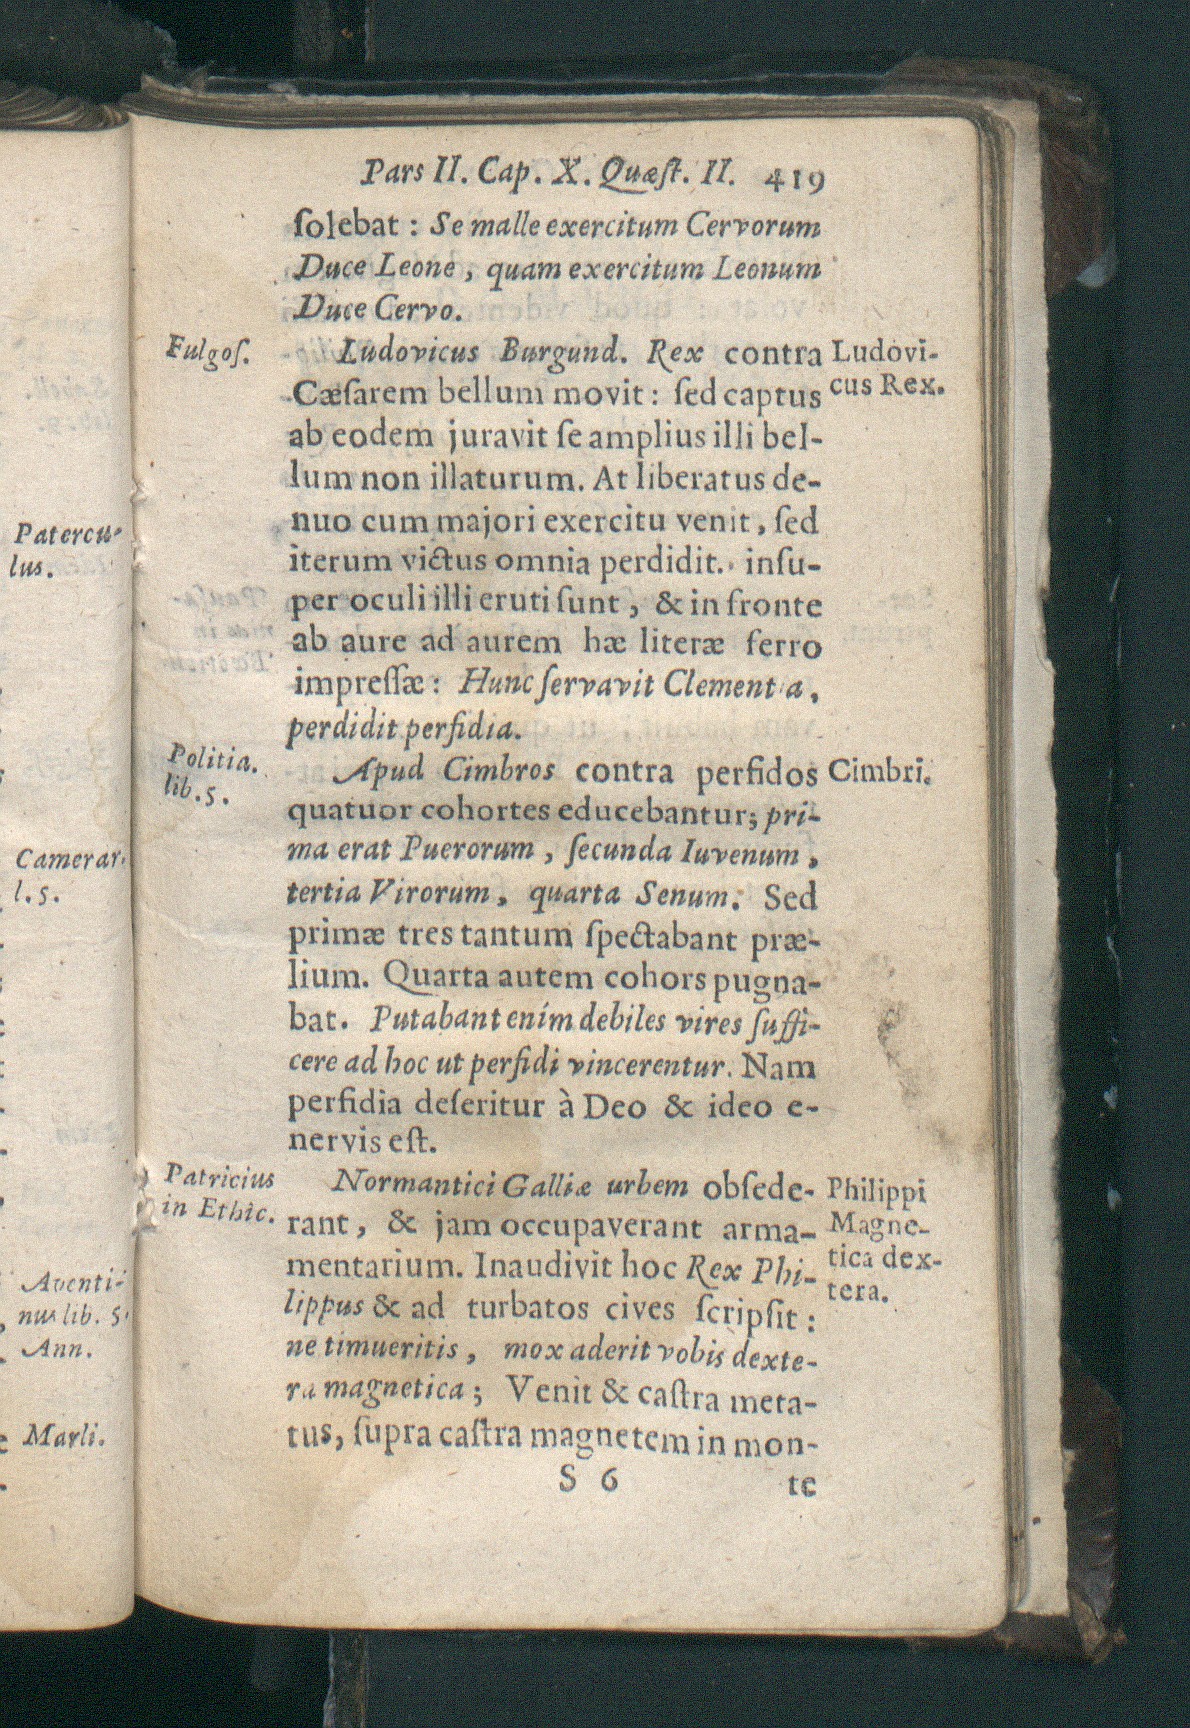 Patercu-
lus.
Camerar.
l. 5.
Aventi-
nus lib. 5.
Ann.
Marli.
Pars II. Cap. X. Quæſt. II. 419
ſolebat : Se malle exercitum Cervorum
Duce Leone, quam exercitum Leonum
Duce Cervo.
Fulgoſ.
Ludovicus Burgund. Rex contra
Ludovi-
cus Rex.
Cæſarem bellum movit : ſed captus
ab eodem juravit ſe amplius illi bel-
lum non illaturum. At liberatus de-
nuo cum majori exercitu venit, ſed
iterum victus omnia perdidit. inſu-
per oculi illi eruti ſunt, & in fronte
ab aure ad aurem hæ literæ ferro
impreſſæ : Hunc ſervavit Clementia,
perdidit perfidia.
Politia.
lib. 5.
Apud Cimbros contra perfidos
Cimbri.
quatuor cohortes educebantur; pri-
ma erat Puerorum, ſecunda Iuvenum,
tertia Virorum, quarta Senum. Sed
primæ tres tantum ſpectabant præ-
lium. Quarta autem cohors pugna-
bat. Putabant enim debiles vires ſuffi-
cere ad hoc ut perfidi vincerentur. Nam
perfidia deſeritur à Deo & ideo e-
nervis eſt.
Patricius
in Ethic.
Normantici Galliæ urbem obſede-
Philippi
Magne-
tica dex-
tera.
rant, & jam occupaverant arma-
mentarium. Inaudivit hoc Rex Phi-
lippus & ad turbatos cives ſcripſit :
ne timueritis, mox aderit vobis dexte-
ra magnetica ; Venit & caſtra meta-
tus, ſupra caſtra magnetem in mon-
S 6 te